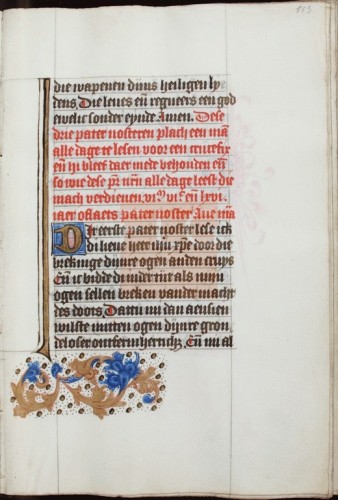 153
die wapenen dijns heiligen ly
dens. Die leues eñ regneers een god
ewelic sonder eynde Amen. Dese
drie pater nosteren plach een mã
alle dage te lesen voor een crucefix
eñ hi bleef daer mede behouden eñ
so wie dese pr̃ nr̃n alle dage leest die
mach verdienen vi.ᵐ vi.ᶜ eñ lxvi.
iaer oflaets pater noster Aue mĩa
Dit eerste pater noster lese ick
di lieue heer ihũ xpẽ door die
brekinge dijnre ogen anden cruys
Eñ ic bidde di inder tijt als mijn
ogen sellen breken vander macht
des doots. Dattu mi dan aensien
wilste mitten ogen dijnre gron
deloser ontfermherticheit. Eñ mi al